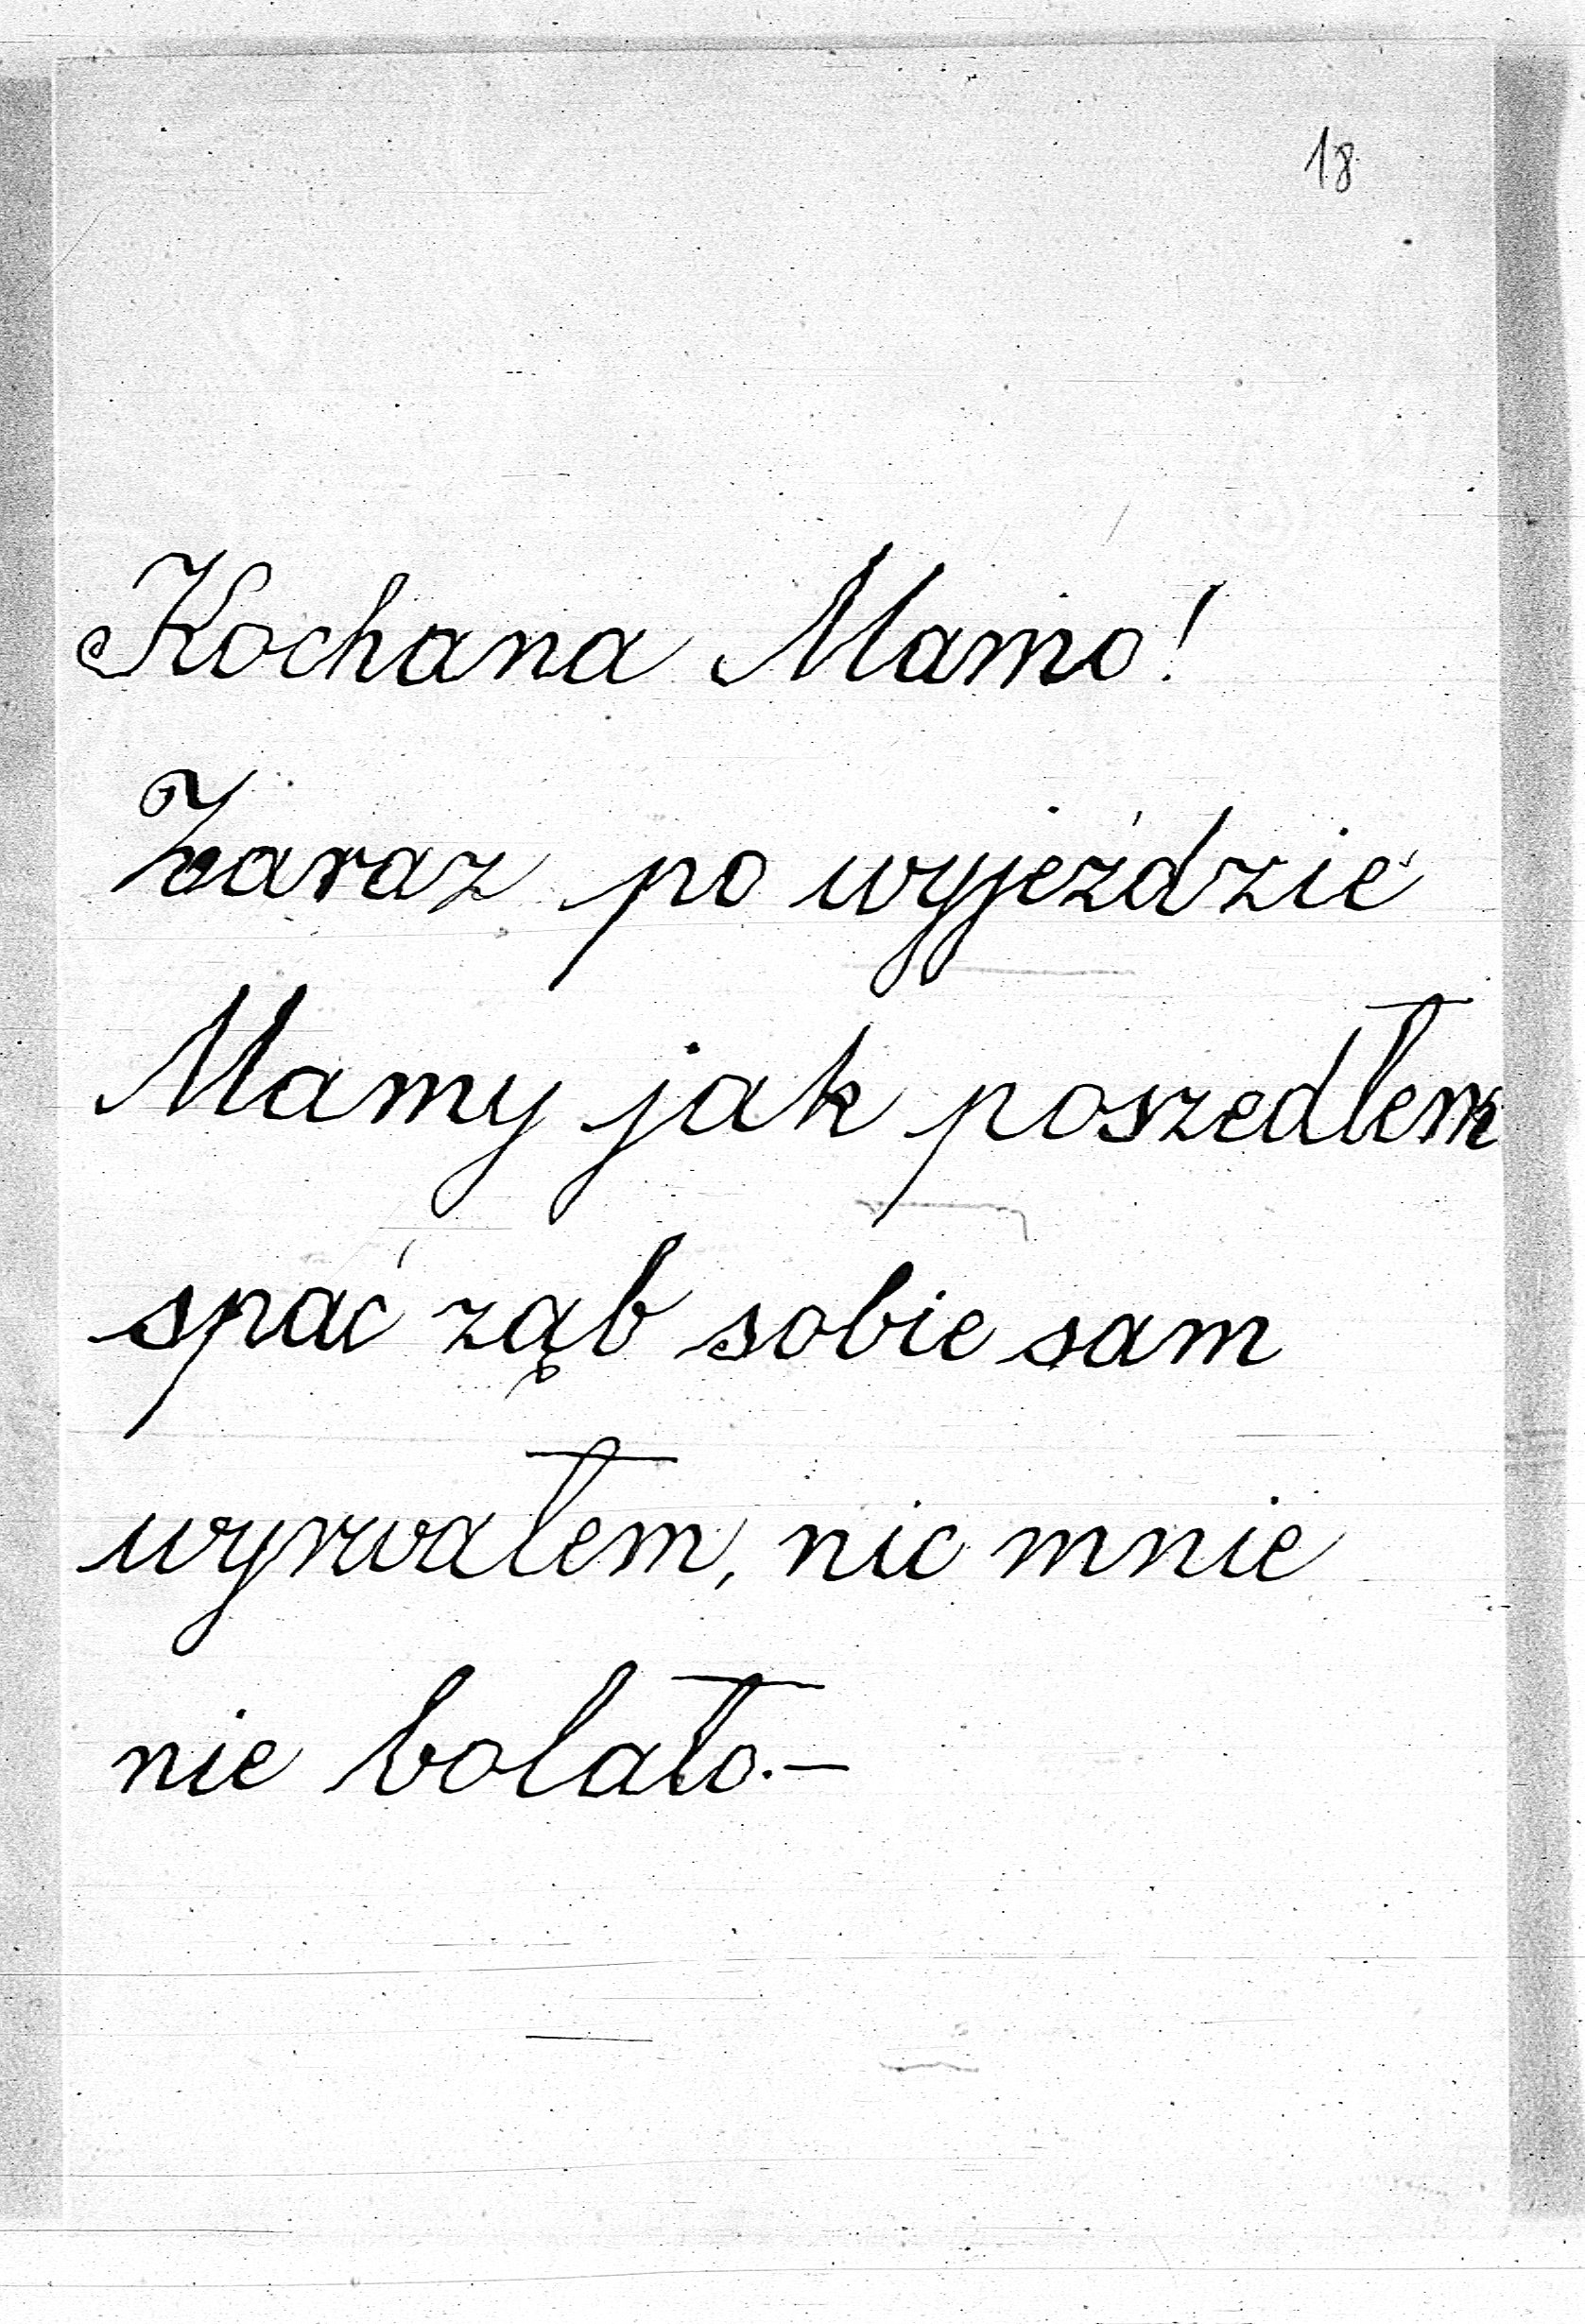 18
Kochana Mamo!
Zaraz po wyjeździe
Mamy jak poszedłem
spać ząb sobie sam
wyrwałem, nic mnie
nie bolało.—